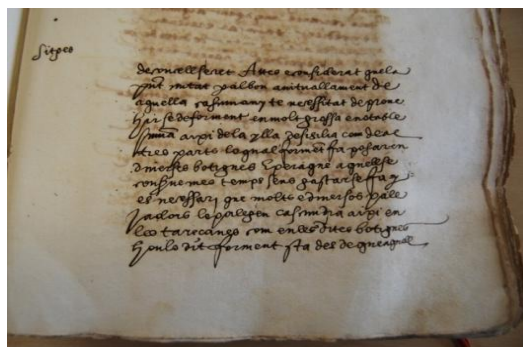 Sitges
de conçell feret Attes e considerat que la
pnt ciutat p al bon avituallament de
aquella casinuany te necessitat de prone
hir se de forment en molt grossa e notable
summa axi de la ylla de sisilia com de al
tres parts lo qual forment fa posar en
diverses botigues E per aço que aquell se
conserve mes temps sens gastarse fa y
es necessari que molts e diversos pale
jadors lo palegen casun dia axi en
les tarecanes com en les dites botigues
hon lo dit forment sta des de que aqual